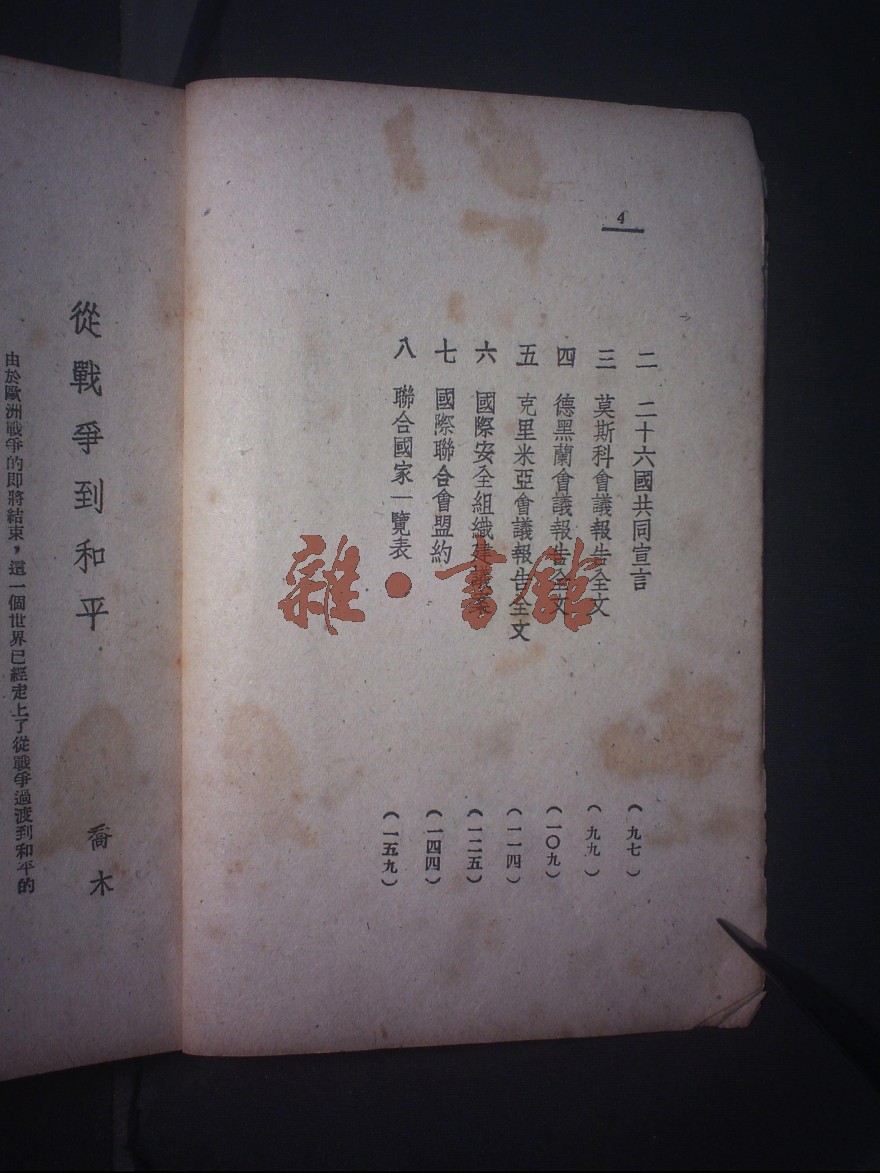 4
二 二十六國共同宣言 (九七)
三 莫斯科會議報告全文 (九九)
四 德黑蘭會議報告全文 (一〇九)
五 克里米亞會議報告全文 (一一四)
六 國際安全組織建議案 (一二五)
七 國際聯合會盟約 (一四四)
八 聯合國家一覽表 (一五九)
雜·書館
從戰爭到和平
喬木
由於歐洲戰爭的即將結束，這一個世界已經走上了從戰爭過渡到和平的